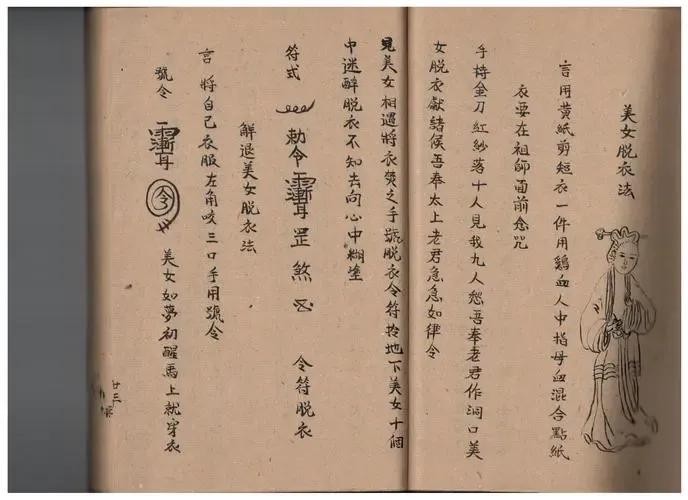 美女脱衣法
言用黄紙剪短衣一件用鷄血人中指母血混合點紙
衣要在祖師面前念咒
手持金刀紅紗落十人見我九人愁吾奉老君作洞口美
女脱衣獻諸侯吾奉太上老君急急如律令
見美女相遇將衣焚之手號脱衣令符拎地下美女十個
中迷醉脱衣不知去向心中糊塗
符式
勅令 罡煞 令符脱衣
解退美女脱衣法
言將自己衣服左角咬三口手用號令
號令 令 美女如夢初醒馬上就穿衣
廿三